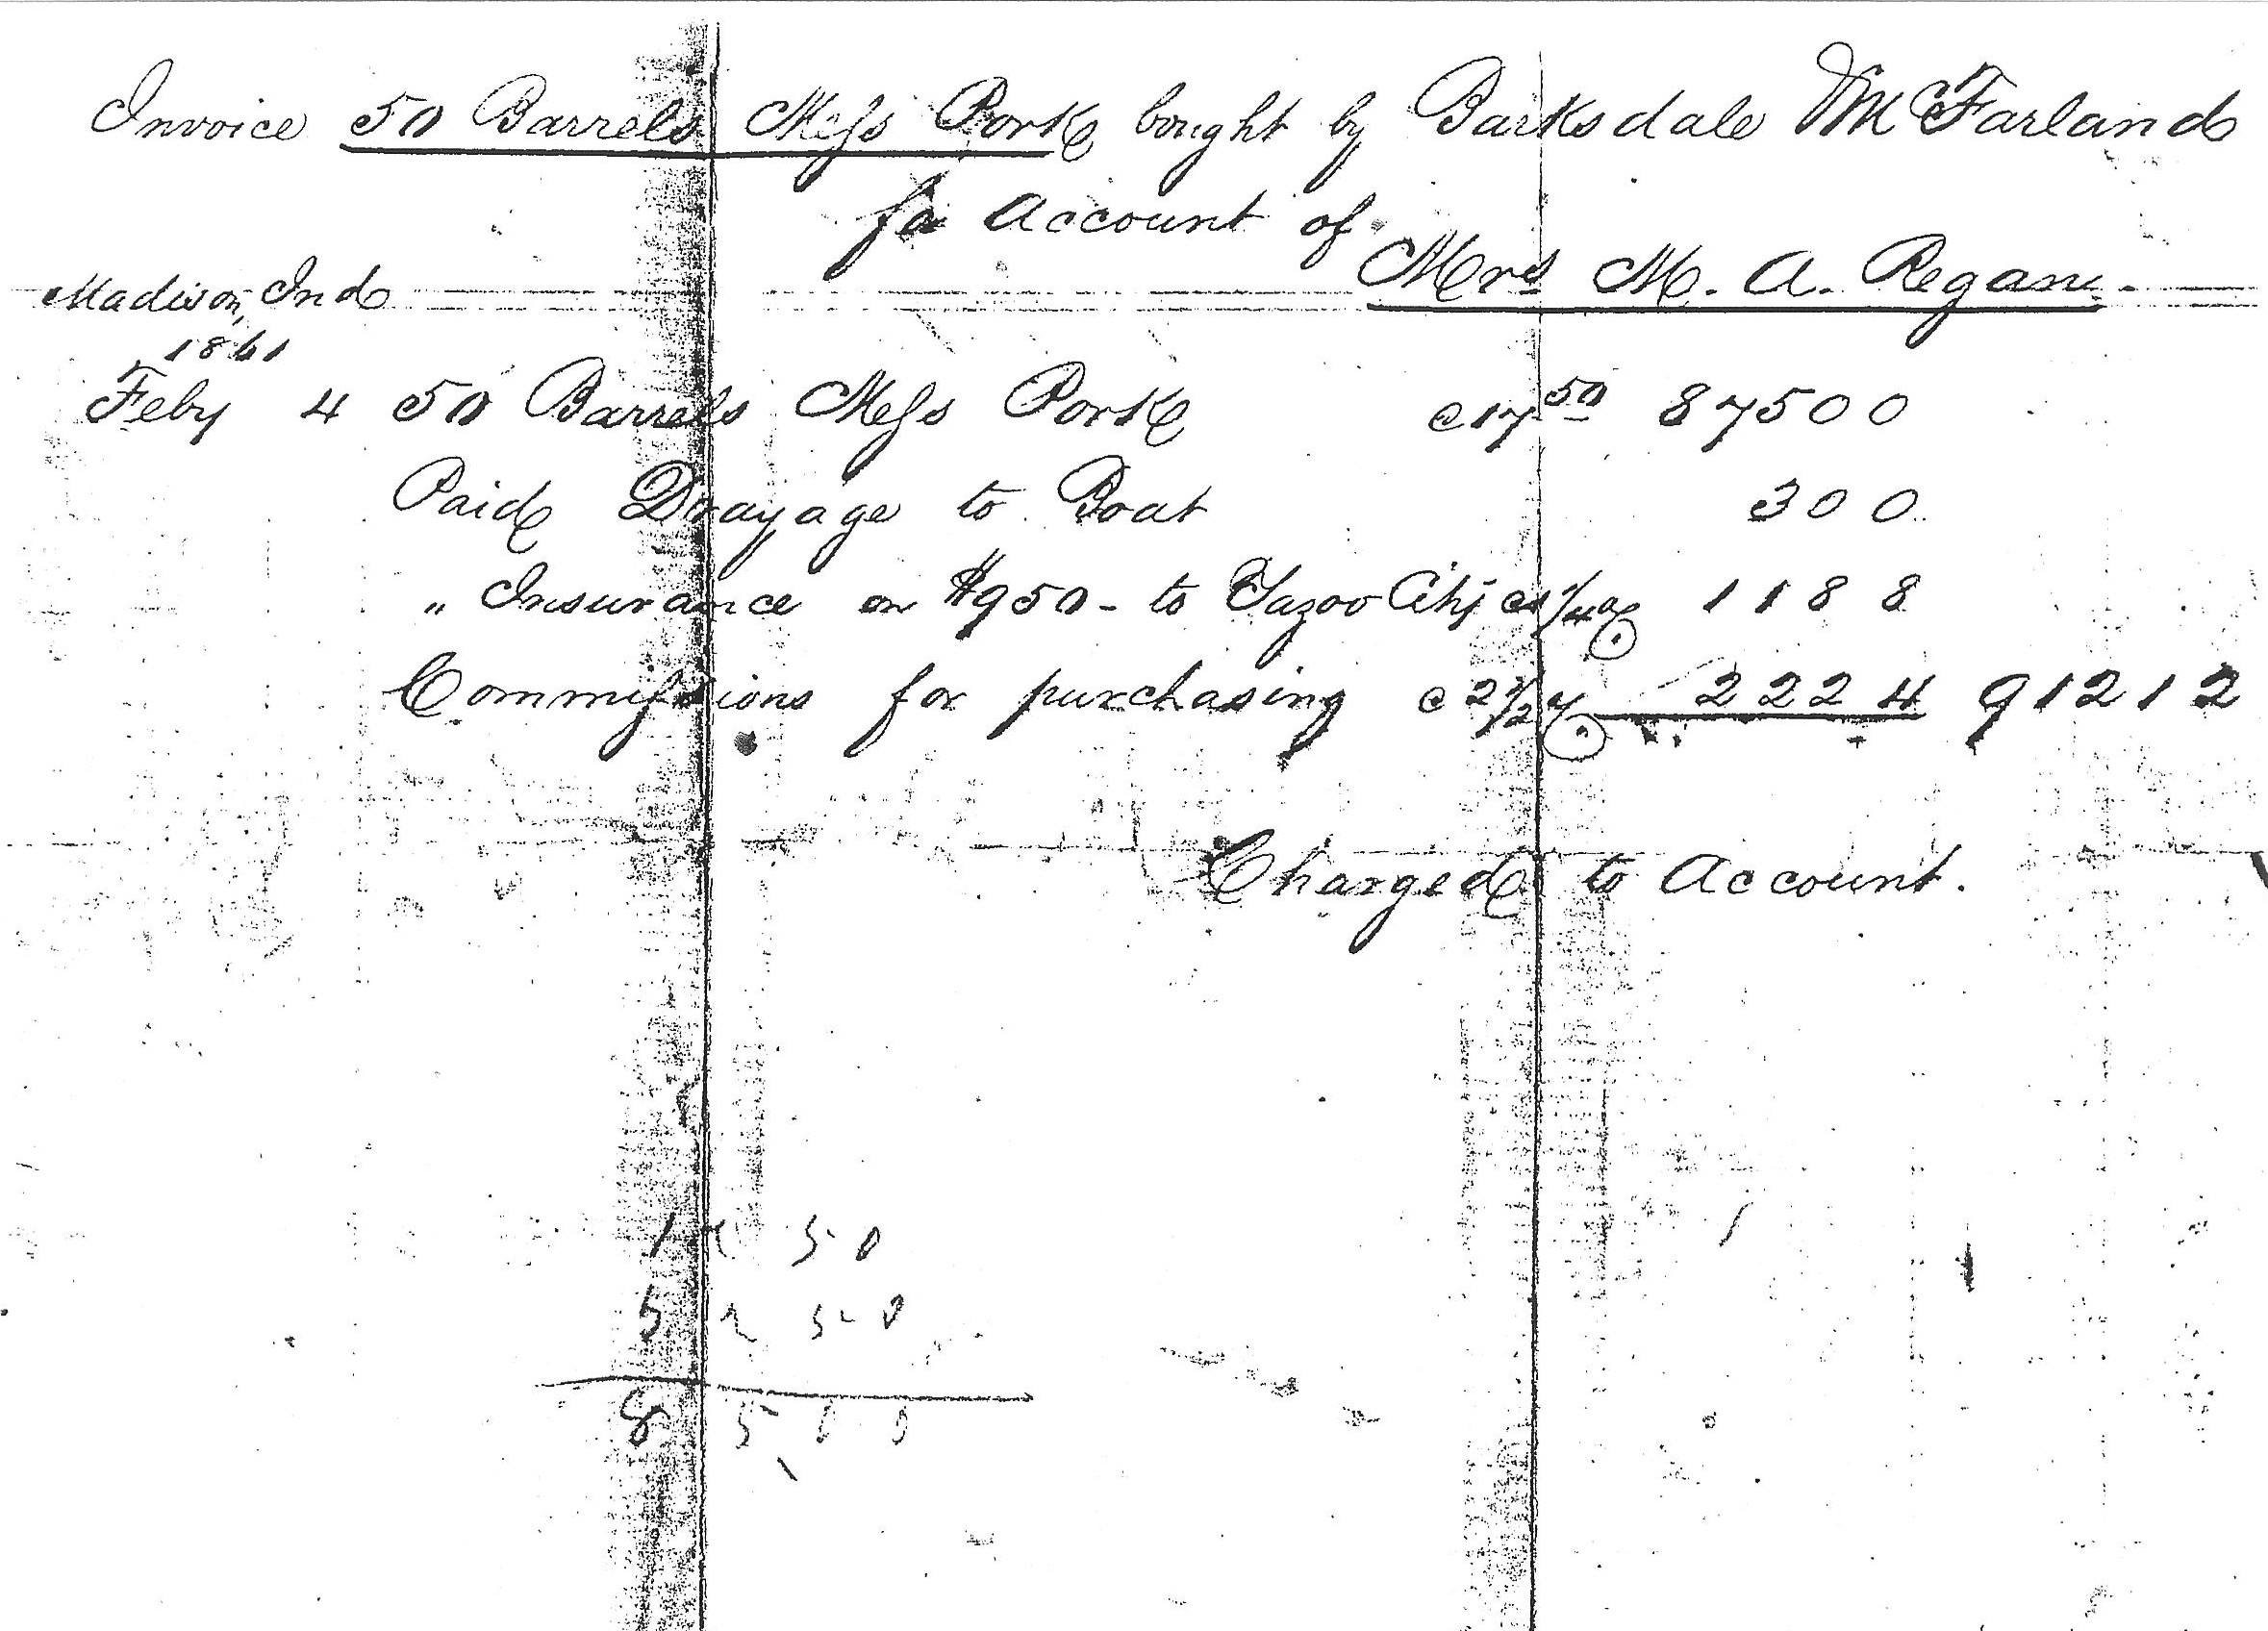 Invoice 50 Barrels Mess Pork bought by Barksdale & McFarland
for Account of
Mrs M. A. Regan.
Madison, Ind
1861
Feby 4 50 Barrels Mess Pork @ 17 50 875 00
Paid Drayage to Boat 3 00
" Insurance on $950 - to Yazoo City @ 1 1/4 % 11 88
Commissions for purchasing @ 2 1/2 % 22 24 912 12
Charged to Account.
50
5 2 50
8 5 0 0